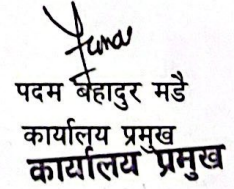 पदम बहादुर मडै
कार्यालय प्रमुख
कार्यालय प्रमुख